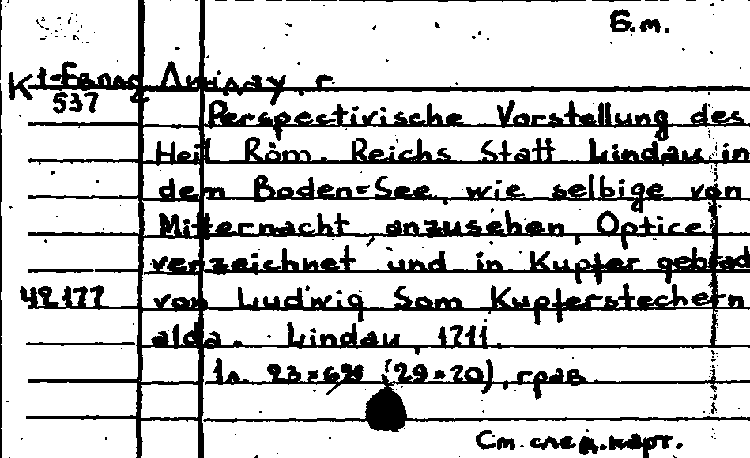 Б.м.
К1-Евпад Линдау, г.
537
Perspectivische Vorstellung des
Heil Röm. Reichs Statt Lindau in
dem Boden=See, wie selbige von
Mitternacht anzusehen, Optice
verzeichnet und in Kupfer gebrad
49177 von Ludwig Som Kupferstechern
alda. Lindau, 1711.
1л. 23×69 (29×70), грав
См. след. карт.